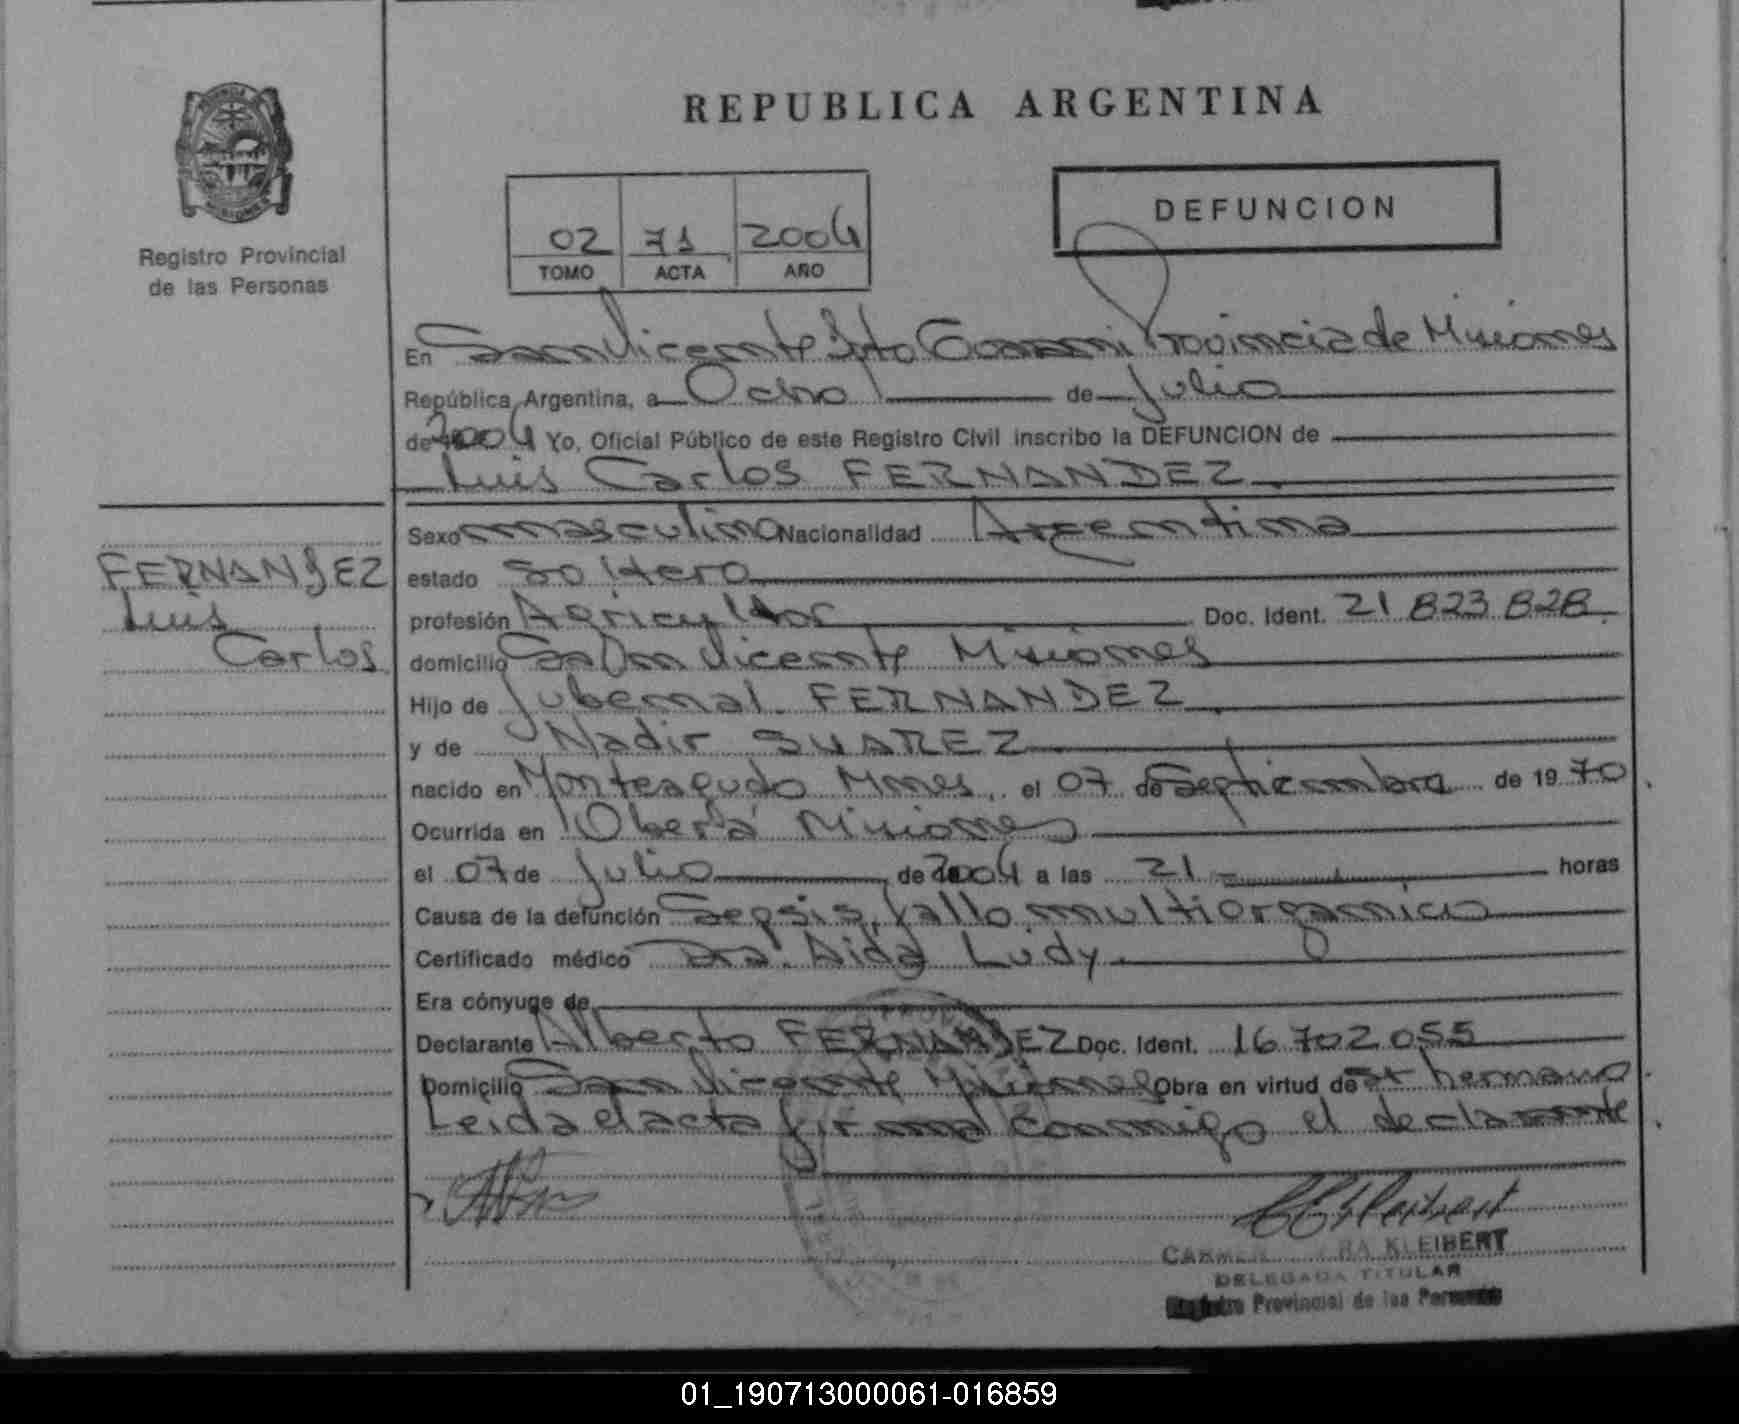 REPUBLICA ARGENTINA
DEFUNCION
02 71 2004
TOMO ACTA AÑO
Registro Provincial
de las Personas
En San Vicente Dpto Guarani Provincia de Misiones
República Argentina, a Ocho de Julio
de 2004 Yo, Oficial Público de este Registro Civil inscribo la DEFUNCION de
Luis Carlos FERNANDEZ
FERNANDEZ
Luis
Carlos
Sexo masculino Nacionalidad Argentina
estado soltero
profesión Agricultor Doc. Ident. 21 823 828
domicilio San Vicente Misiones
Hijo de Jubenal FERNANDEZ
y de Nadir SUAREZ
nacido en Monteagudo Mnes, el 07 de Septiembre de 1970
Ocurrida en Oberá Misiones
el 07 de Julio de 2004 a las 21 horas
Causa de la defunción Sepsis, fallo multiorganico
Certificado médico Dra. Aida Ludy
Era cónyuge de
Declarante Alberto FERNANDEZ Doc. Ident. 16 702 055
Domicilio San Vicente Misiones Obra en virtud de hermano
Leida el acta firma conmigo el declarante
CARMEN KLEIBERT
DELEGADA TITULAR
Registro Provincial de las Personas
01_190713000061-016859